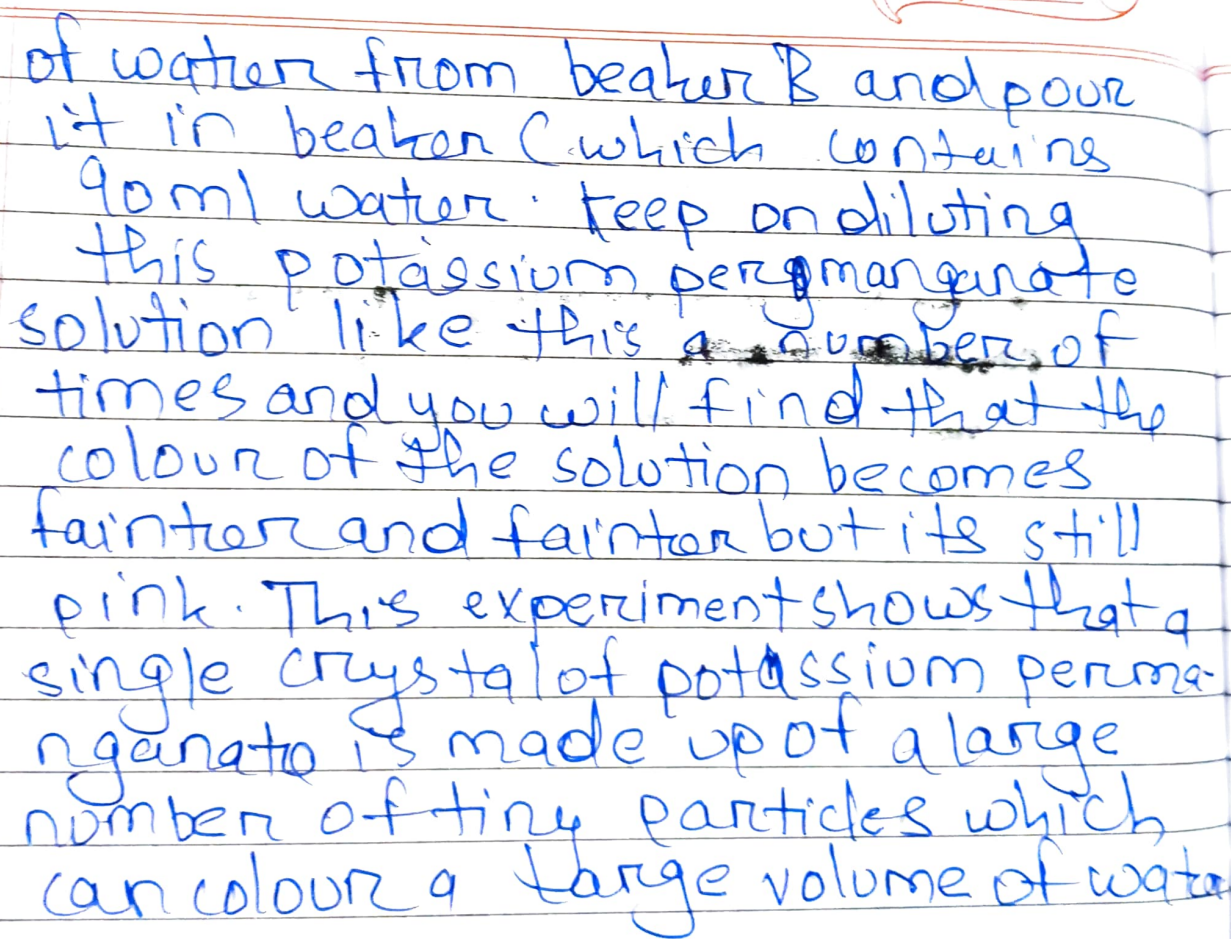 of water from beaker B and pour
it in beaker C which contains
90ml water. Keep on diluting
this potassium permanganate
solution like this a number of
times and you will find that the
colour of the solution becomes
fainter and fainter but its still
pink. This experiment shows that a
single crystal of potassium perma-
nganate is made up of a large
number of tiny particles which
can colour a large volume of water